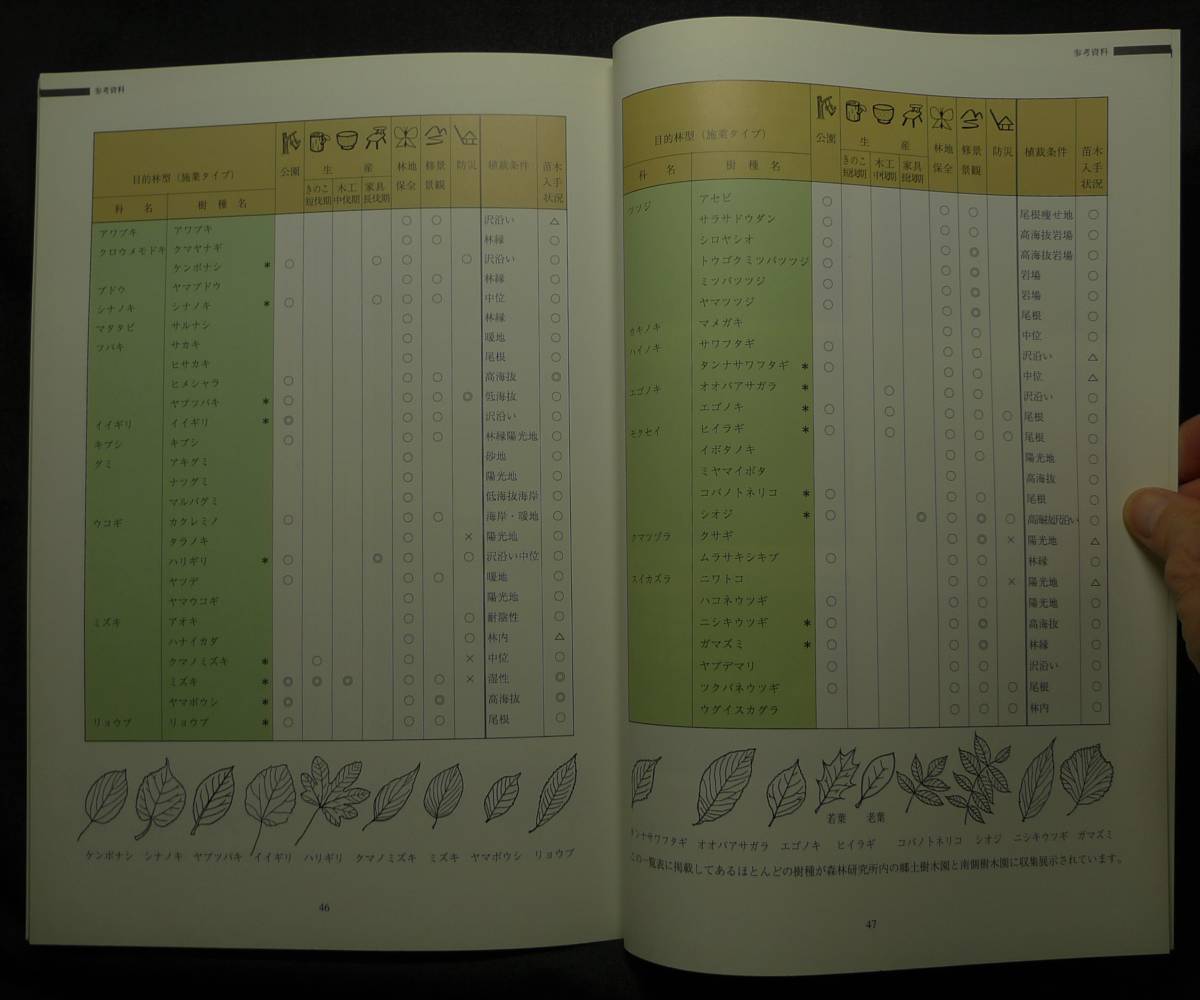 参考資料
目的林型(施業タイプ) 公園 生産 林地保全 修景景観 防災 植栽条件 苗木入手状況
科名 樹種名 きのこ短伐期 木工中伐期 家具長伐期
アワブキ アワブキ ○ ○ 沢沿い △
クロウメモドキ クマヤナギ ○ ○ 林縁 ○
ケンポナシ * ○ ○ ○ ○ 沢沿い ○
ブドウ ヤマブドウ ○ ○ 林縁 ○
シナノキ シナノキ * ○ ○ ○ ○ 中位 ○
マタタビ サルナシ ○ 林縁 ○
ツバキ サカキ ○ 暖地 ○
ヒサカキ ○ 尾根 ○
ヒメシャラ ○ ○ ○ 高海抜 ◎
ヤブツバキ * ○ ○ ○ ◎ 低海抜 ○
イイギリ イイギリ * ◎ ○ ○ 沢沿い ○
キブシ キブシ ○ ○ ○ 林縁陽光地 ○
グミ アキグミ ○ 砂地 ○
ナツグミ ○ 陽光地 ○
マルバグミ ○ 低海抜海岸 ○
ウコギ カクレミノ ○ ○ ○ 海岸・暖地 ○
タラノキ ○ × 陽光地 ○
ハリギリ * ○ ◎ ○ ○ 沢沿い中位 ○
ヤツデ ○ ○ ○ 暖地 ○
ヤマウコギ ○ 陽光地 ○
ミズキ アオキ ○ ○ 耐陰性 ○
ハナイカダ ○ ○ 林内 △
クマノミズキ * ○ ○ × 中位 ○
ミズキ * ◎ ◎ ◎ ○ ○ × 湿性 ◎
ヤマボウシ * ◎ ○ ◎ 高海抜 ◎
リョウブ リョウブ * ○ ○ ○ 尾根 ○
ケンポナシ シナノキ ヤブツバキ イイギリ ハリギリ クマノミズキ ミズキ ヤマボウシ リョウブ
46
参考資料
目的林型(施業タイプ) 公園 生産 林地保全 修景景観 防災 植栽条件 苗木入手状況
科名 樹種名 きのこ短伐期 木工中伐期 家具長伐期
ツツジ アセビ ○ ○ ○ 尾根痩せ地 ○
サラサドウダン ○ ○ ○ 高海抜岩場 ○
シロヤシオ ○ ○ ◎ 高海抜岩場 ○
トウゴクミツバツツジ ○ ○ ◎ 岩場 ○
ミツバツツジ ○ ○ ◎ 岩場 ○
ヤマツツジ ○ ○ ◎ 尾根 ○
カキノキ マメガキ ○ ○ 中位 ○
ハイノキ サワフタギ ○ ○ ○ 沢沿い △
タンナサワフタギ * ○ ○ ○ 中位 △
エゴノキ オオバアサガラ * ○ ○ ○ 沢沿い ○
エゴノキ * ○ ○ ○ ○ ○ 尾根 ○
モクセイ ヒイラギ * ○ ○ ○ ○ ○ 尾根 ○
イボタノキ ○ 陽光地 ○
ミヤマイボタ ○ 高海抜 ○
コバノトネリコ * ○ ○ ○ 尾根 ○
シオジ * ○ ◎ ○ ◎ ○ 高海抜沢沿い ○
クマツヅラ クサギ ○ ◎ × 陽光地 △
ムラサキシキブ ○ ○ ○ 林縁 ○
スイカズラ ニワトコ ○ ○ × 陽光地 △
ハコネウツギ ○ ○ ○ 陽光地 ○
ニシキウツギ * ○ ○ ◎ 高海抜 ○
ガマズミ * ○ ○ ◎ 林縁 ○
ヤブデマリ ○ ○ ○ 沢沿い ○
ツクバネウツギ ○ ○ ○ ○ 尾根 ○
ウグイスカグラ ○ ○ ○ 林内 ○
若葉 老葉
タンナサワフタギ オオバアサガラ エゴノキ ヒイラギ コバノトネリコ シオジ ニシキウツギ ガマズミ
この一覧表に掲載してあるほとんどの樹種が森林研究所内の郷土樹木園と南側樹木園に収集展示されています。
47